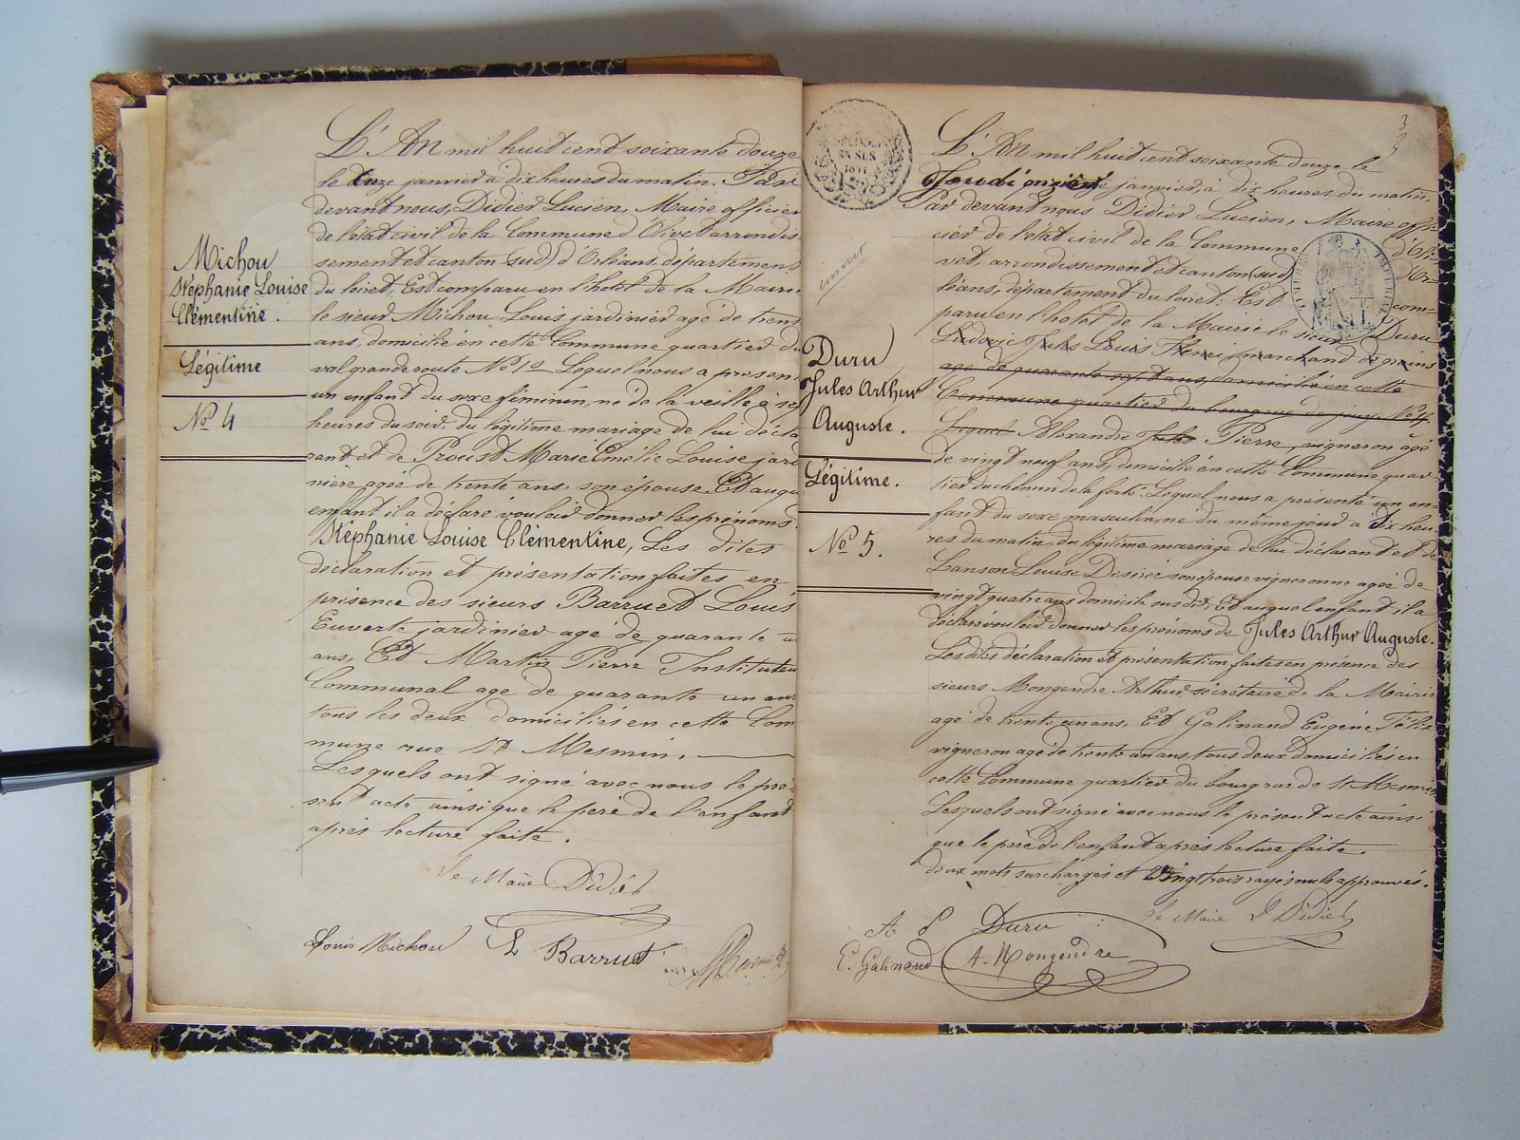 Michou
Stéphanie Louise
Clémentine.
Légitime
No 4
L'An mil huit cent soixante douze
le onze janvier à dix heures du matin. Par
devant nous, Didier Lucien, Maire officier
de l'état civil de la Commune d'Olivet arrondis
sement et canton (sud) d'Orléans, département
du loiret, Est comparu en l'hôtel de la Mairie
le sieur Michou Louis jardinier agé de trente
ans, domicilié en cette Commune quartier du
val grande route No 12 Lequel nous a présen
un enfant du sexe féminin, né de la veille à
heures du soir du légitime mariage de lui décla
rant et de Proust Marie Emélie Louise jardi
nière agée de trente ans son épouse Et auqu
enfant il a déclaré vouloir donner les prénoms
Stéphanie Louise Clémentine, Les dites
déclaration et présentation faites en
présence des sieurs Barruet Louis
Euverte jardinier agé de quarante
ans, Et Martin Pierre Instituteur
Communal agé de quarante un ans
tous les deux domiciliés en cette Com
mune rue St Mesmin.
Lesquels ont signé avec nous le pré
sent acte ainsi que le père de l'enfant
après lecture faite.
Le Maire Didier
Louis Michou L Barruet
3
Duru
Jules Arthur
Auguste.
Légitime.
No 5.
L'An mil huit cent soixante douze le
Jeudi onze janvier, à dix heures du matin,
Par devant nous Didier Lucien, Maire offi
cier de l'état civil de la Commune d'Oli
vet, arrondissement et canton (sud) d'Or
léans, département du loiret; Est com-
paru en l'hôtel de la Mairie le sieur Duru
Ludovic Jules Louis Henri marchand de grains
agé de quarante sept ans, domicilié en cette
Commune quartier du bourg rue
Lequel Alexandre Jules Pierre, vigneron agé
de vingt neuf ans, domicilié en cette Commune quar
tier du chemin de la forte. Lequel nous a présenté un en
fant du sexe masculin, né du même jour à dix heu
res du matin du légitime mariage de lui déclarant et de
Lanson Louise Desirée son épouse vigneronne agée de
vingt quatre ans domicile susdit; Et auquel enfant il a
déclaré vouloir donner les prénoms de Jules Arthur Auguste.
Les dites déclaration et présentation faites en présence des
sieurs Mongendre Arthur secrétaire de la Mairie
agé de trente un ans, Et Galinand Eugène Félix
vigneron agé de trente un ans tous deux domiciliés en
cette Commune quartier du bourg rue de St Mesmin
Lesquels ont signé avec nous le présent acte ainsi
que le père de l'enfant après lecture faite.
deux mots surchargés et Vingt trois rayés nuls approuvés.
Le Maire L Didier
A P Duru
E. Galinand A. Mongendre